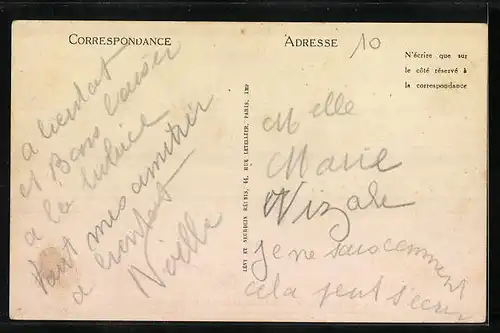 CORRESPONDANCE
a bientot
et Bons baiser
a la
tout mes amitier
a bientot
Noëlle
LÉVY ET NEURDEIN RÉUNIS, 44, RUE LETELLIER, PARIS, IMP
ADRESSE
10
N'écrire que sur
le côté réservé à
la correspondance
Melle
Marie
Nizale
je ne sais comment
cela peut s'écrir